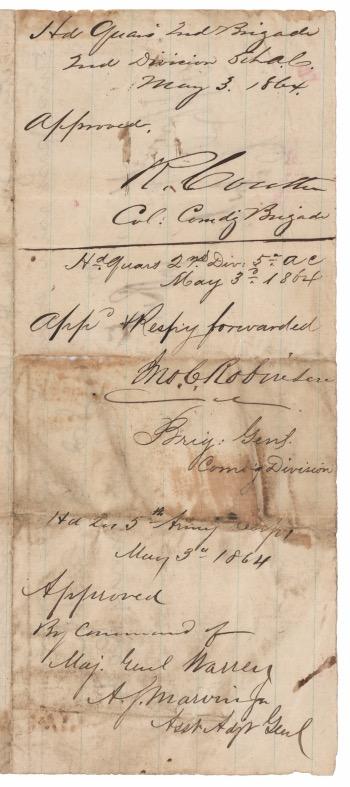 Hd Quars 2nd Brigade
2nd Division 5th A.C.
May 3. 1864.
Approved.
R. Coulter
Col: Comdg Brigade
Hd Quars 2nd Div: 5th A C
May 3d 1864
Appd & Respy forwarded
Jno. C. Robinson
Brig: Genl.
Comg Division
Hd Qrs 5th Army Corps
May 3d 1864
Approved
By Command of
Maj. Genl Warren
A. S. Marvin Jr
Asst Adjt Genl